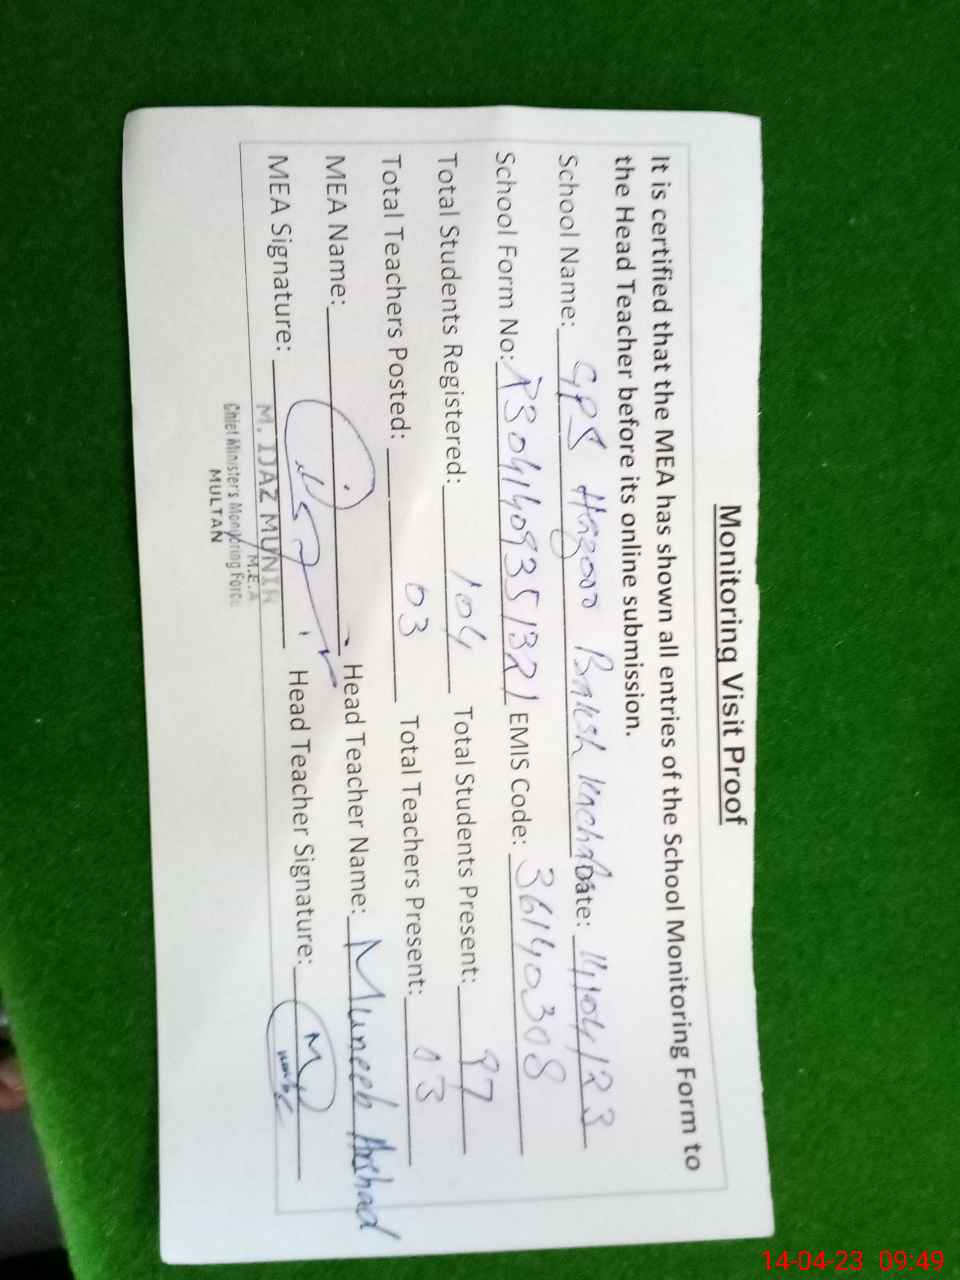 Monitoring Visit Proof
It is certified that the MEA has shown all entries of the School Monitoring Form to
the Head Teacher before its online submission.
School Name: GPS Hazoor Bakish Date: 14/04/23
School Form No: R3041409351321 EMIS Code: 36140308
Total Students Registered: 104 Total Students Present: 97
Total Teachers Posted: 03 Total Teachers Present: 03
MEA Name: Head Teacher Name: Muneeb Arshad
MEA Signature: Head Teacher Signature:
M. IJAZ MUNIR
M.E.A
Chief Minister's Monitoring Force
MULTAN
14-04-23 09:49